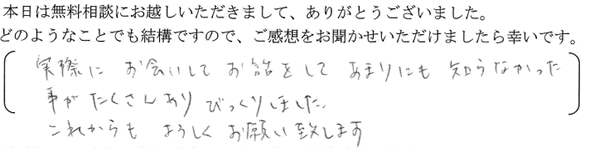 本日は無料相談にお越しいただきまして、ありがとうございました。
どのようなことでも結構ですので、ご感想をお聞かせいただけましたら幸いです。
実際に お会いして お話をして あまりにも 知らなかった
事が たくさんあり びっくりしました。
これからも よろしく お願い致します